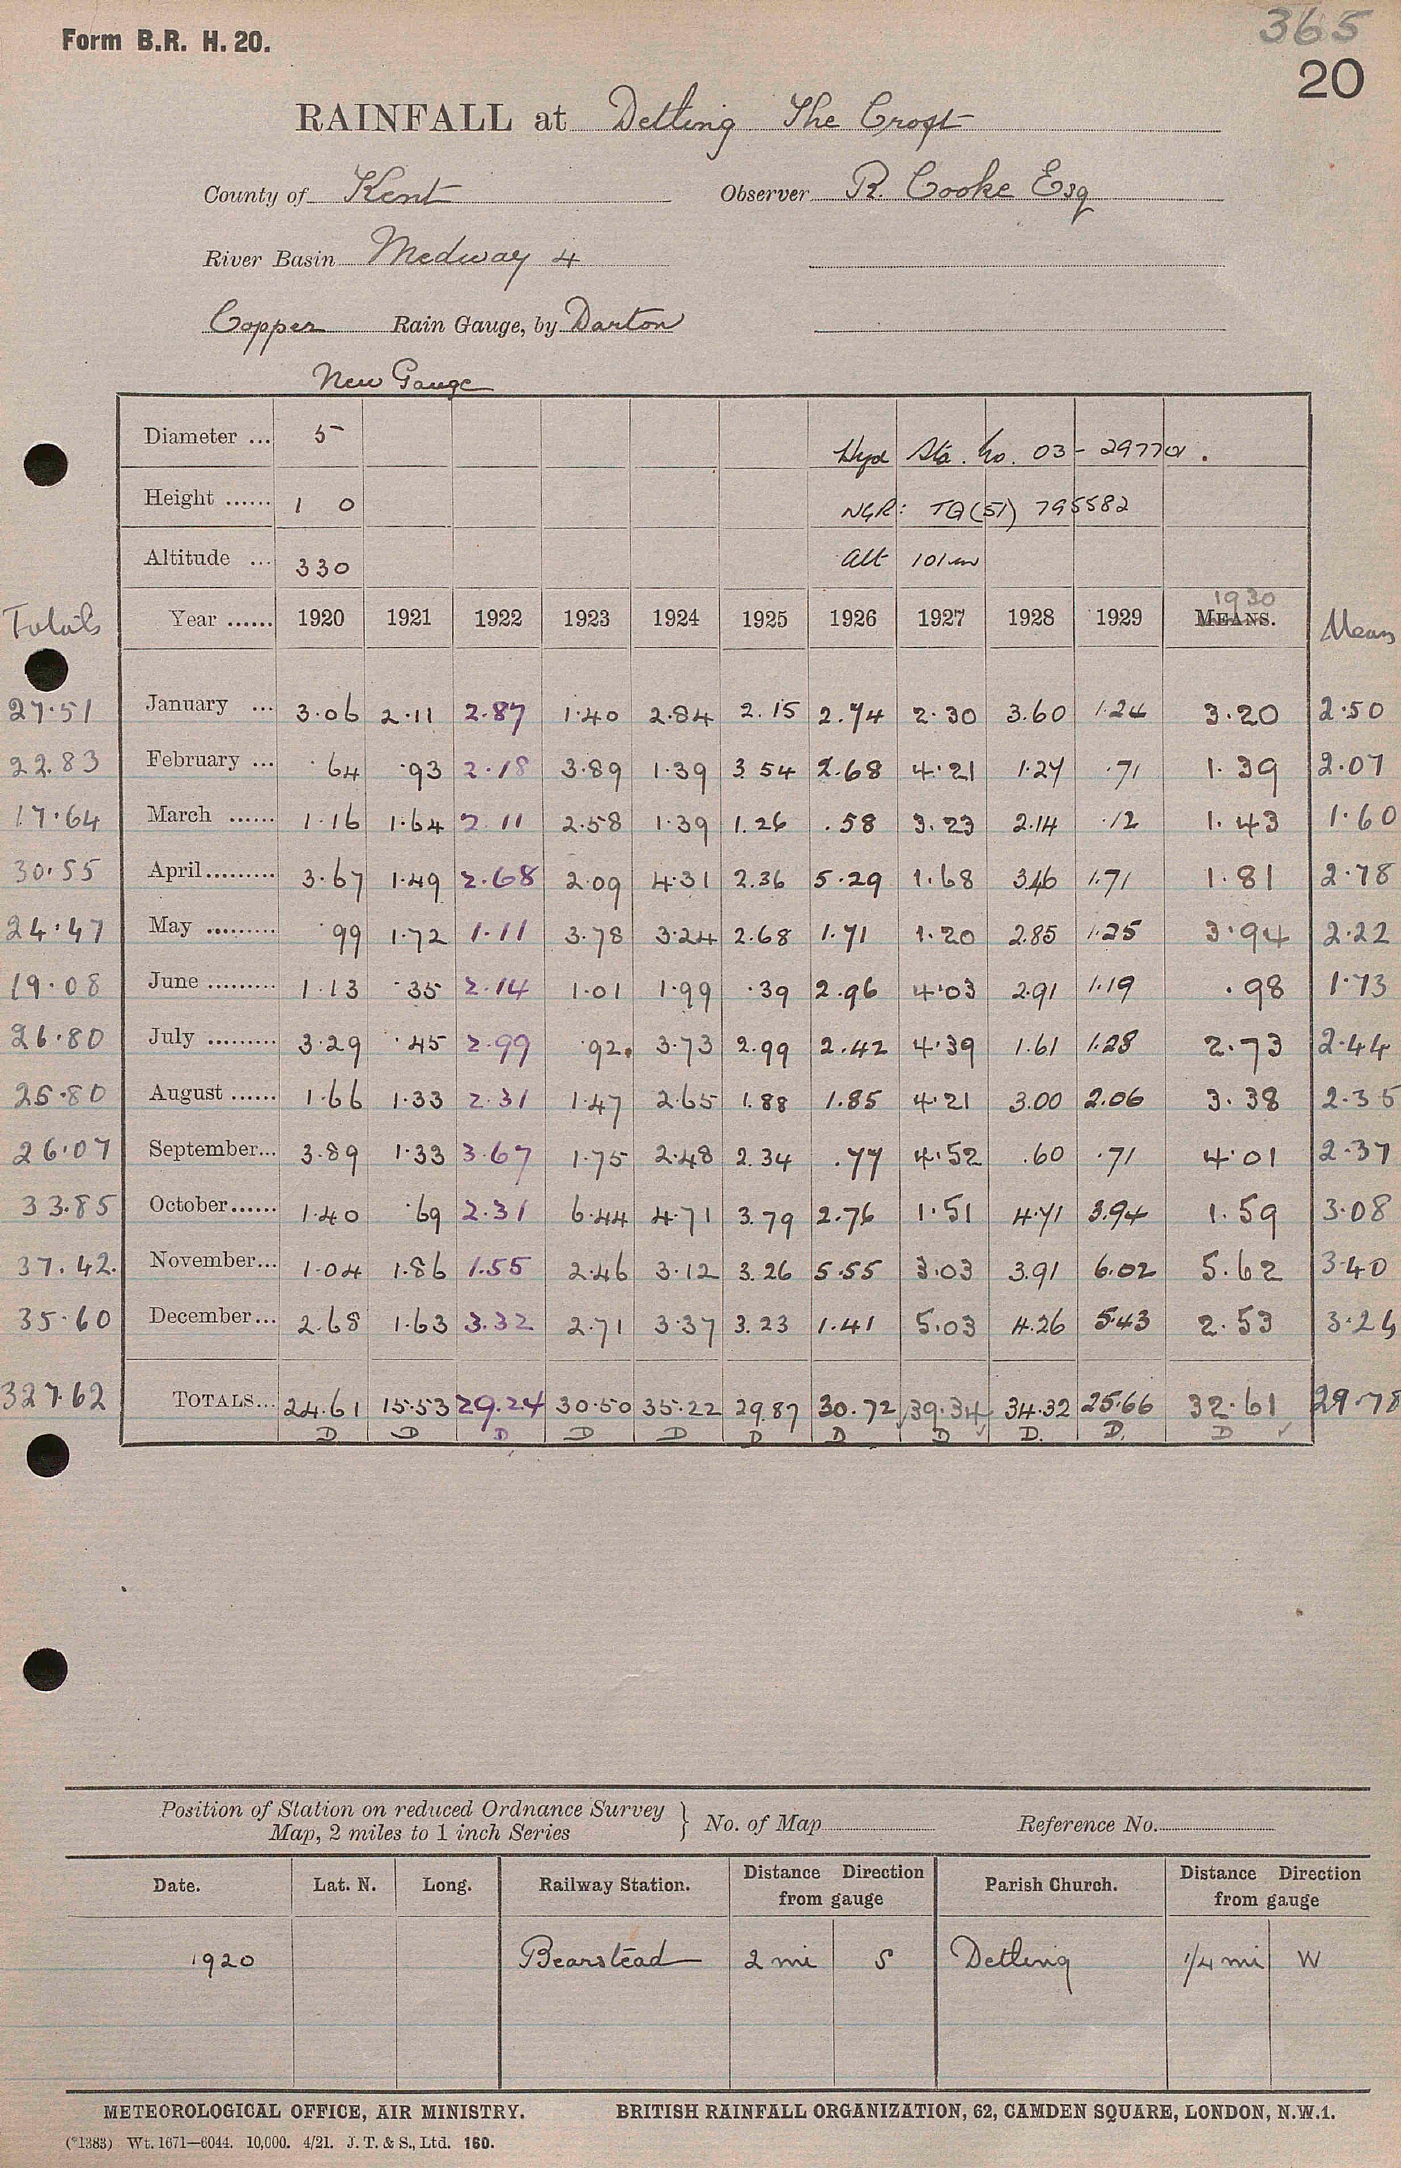 365
Form B.R. H. 20.
20
RAINFALL at Detling The Croft
County of Kent Observer R. Cooke Esq
River Basin Medway 4
Copper Rain Gauge, by Darton
New Gauge
Diameter ... 5 Hyd Sta. No. 03-29770.
Height ...... 1 0 NGR: TQ(51) 795582
Altitude ... 330 Alt 101m
Totals Year ...... 1920 1921 1922 1923 1924 1925 1926 1927 1928 1929 1930 MEANS. Mean
27.51 January ... 3.06 2.11 2.87 1.40 2.84 2.15 2.74 2.30 3.60 1.24 3.20 2.50
22.83 February ... .64 .93 2.18 3.89 1.39 3.54 2.68 4.21 1.27 .71 1.39 2.07
17.64 March ...... 1.16 1.64 2.11 2.58 1.39 1.26 .58 3.23 2.14 .12 1.43 1.60
30.55 April......... 3.67 1.49 2.68 2.09 4.31 2.36 5.29 1.68 3.46 1.71 1.81 2.78
24.47 May ......... .99 1.72 1.11 3.78 3.24 2.68 1.71 1.20 2.85 1.25 3.94 2.22
19.08 June ......... 1.13 .35 2.14 1.01 1.99 .39 2.96 4.03 2.91 1.19 .98 1.73
26.80 July ......... 3.29 .45 2.99 .92. 3.73 2.99 2.42 4.39 1.61 1.28 2.73 2.44
25.80 August ...... 1.66 1.33 2.31 1.47 2.65 1.88 1.85 4.21 3.00 2.06 3.38 2.35
26.07 September... 3.89 1.33 3.67 1.75 2.48 2.34 .77 4.52 .60 .71 4.01 2.37
33.85 October...... 1.40 .69 2.31 6.44 4.71 3.79 2.76 1.51 4.71 3.94 1.59 3.08
37.42. November... 1.04 1.86 1.55 2.46 3.12 3.26 5.55 3.03 3.91 6.02 5.62 3.40
35.60 December... 2.68 1.63 3.32 2.71 3.37 3.23 1.41 5.03 4.26 5.43 2.53 3.24
327.62 TOTALS... 24.61 15.53 29.24 30.50 35.22 29.87 30.72 39.34 34.32 25.66 32.61 29.78
D D D D D D D D D. D. D
Position of Station on reduced Ordnance Survey Map, 2 miles to 1 inch Series } No. of Map Reference No.
Date. Lat. N. Long. Railway Station. Distance Direction from gauge Parish Church. Distance Direction from gauge
1920 Bearstead 2 mi S Detling 1/4 mi W
METEOROLOGICAL OFFICE, AIR MINISTRY. BRITISH RAINFALL ORGANIZATION, 62, CAMDEN SQUARE, LONDON, N.W.1.
(*1383) Wt. 1671—6044. 10,000. 4/21. J. T. & S., Ltd. 160.